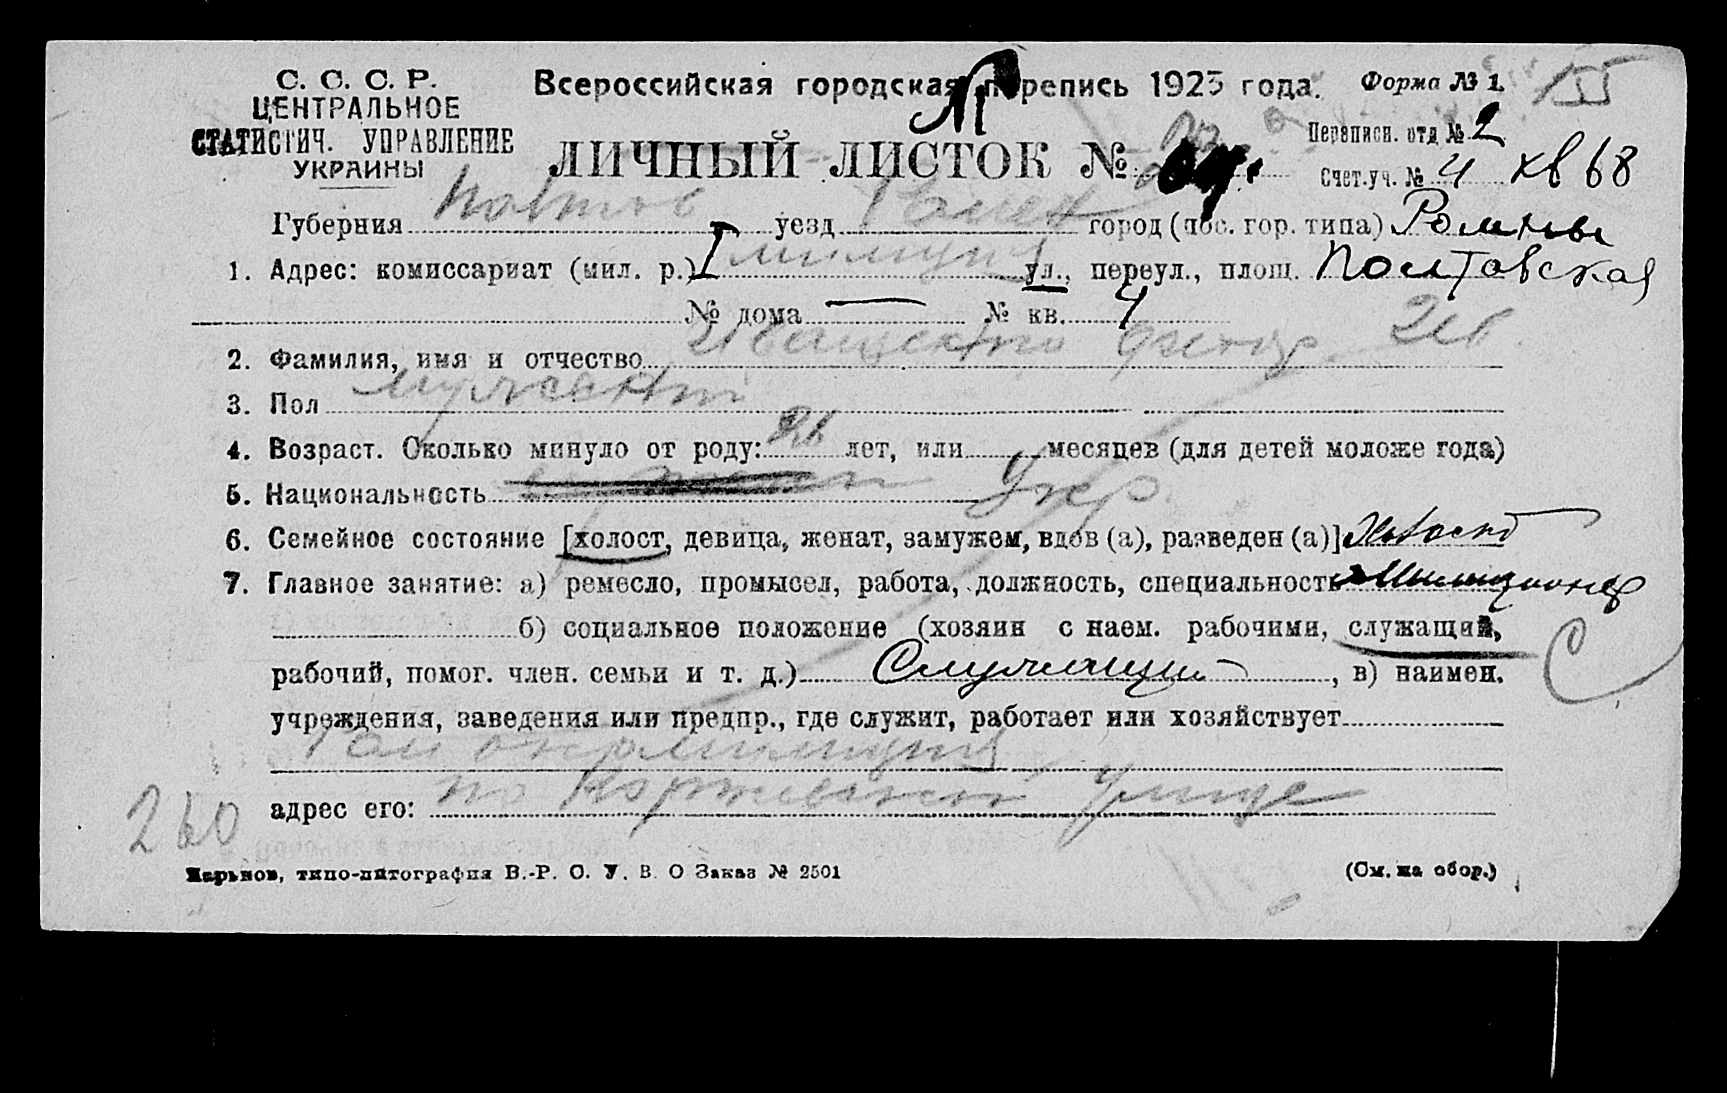 С. С. С. Р.
ЦЕНТРАЛЬНОЕ
СТАТИСТИЧ. УПРАВЛЕНИЕ
УКРАИНЫ
Всероссийская городская перепись 1923 года.
Форма № 1.
III
ЛИЧНЫЙ ЛИСТОК №
Переписн. отд № 2
Счет.уч. № 4 кв 68
Губерния Полтов уезд Ромен город (пос. гор. типа) Ромны
1. Адрес: комиссариат (мил. р.) I милиция ул., переул., площ. Полтавская
№ дома — № кв. 4
2. Фамилия, имя и отчество Иващенко Федор
3. Пол мужской
4. Возраст. Сколько минуло от роду: 26 лет, или месяцев (для детей моложе года)
5. Национальность Укр.
6. Семейное состояние [холост, девица, женат, замужем, вдов (а), разведен (а)] Холост
7. Главное занятие: а) ремесло, промысел, работа, должность, специальность Милиционер
б) социальное положение (хозяин с наем. рабочими, служащий,
рабочий, помог. член. семьи и т. д.) Служащий, в) наимен.
С
учреждения, заведения или предпр., где служит, работает или хозяйствует
окрмилиция
адрес его: по улице
260
Харьков, типо-литография В.-Р. О. У. В. О Заказ № 2501
(См. на обор.)